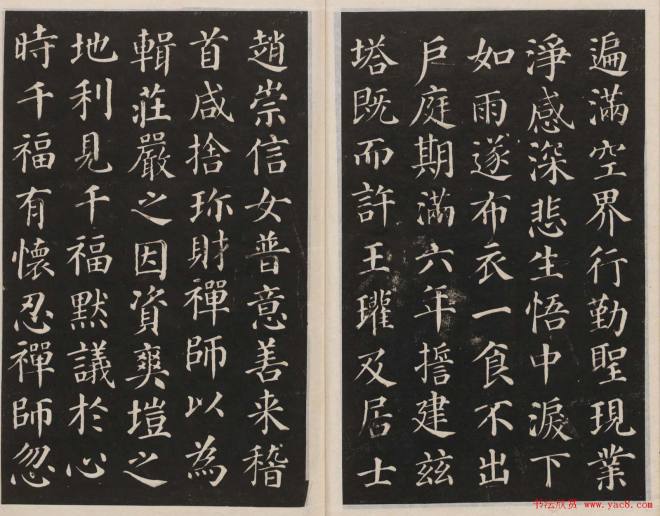 遍滿空界行勤聖現業
淨感深悲生悟中淚下
如雨遂布衣一食不出
戶庭期滿六年擔建茲
塔既而許王瓘及居士
趙崇信女普意善来稽
首咸捨珎財禪師以為
輯莊嚴之因資爽塏之
地利見千福默議於心
時千福有懷忍禪師忽
书法欣赏 www.yac8.com